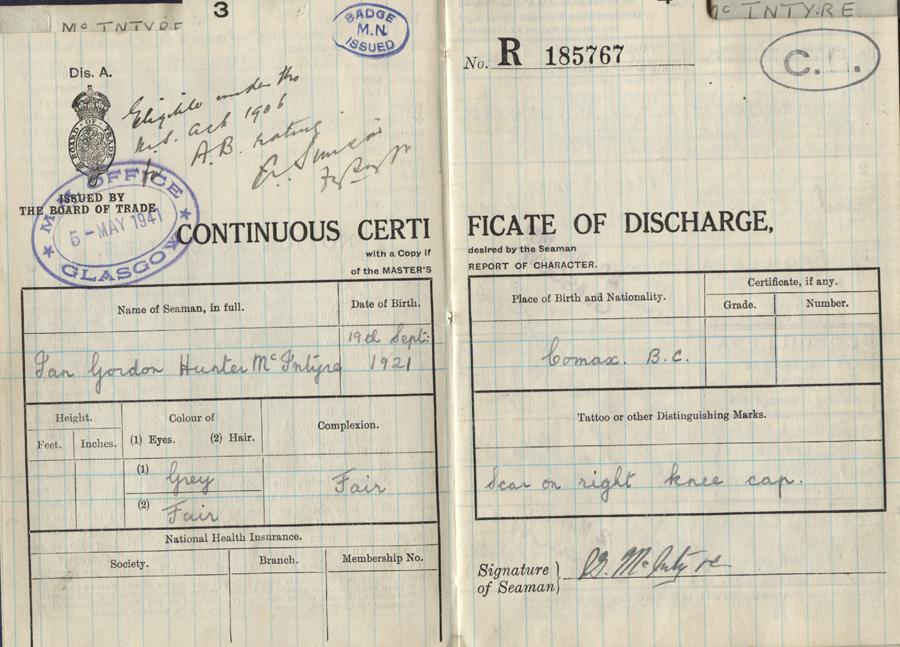 Mc INTYRE
3
BADGE
M.N.
ISSUED
Dis. A.
BOARD OF TRADE
Eligible under the
M.S. act 1906
for A.B. rating.
M.M. OFFICE
5 - MAY 1941
GLASGOW
ISSUED BY
THE BOARD OF TRADE
CONTINUOUS CERTI
with a Copy if
of the MASTER'S
Name of Seaman, in full.
Date of Birth.
Ian Gordon Hunter McIntyre
19th Sept:
1921
Height.
Colour of
Complexion.
Feet.
Inches.
(1) Eyes.
(2) Hair.
(1) Grey
(2) Fair
Fair
National Health Insurance.
Society.
Branch.
Membership No.
Mc INTYRE
No. R 185767
C.
FICATE OF DISCHARGE,
desired by the Seaman
REPORT OF CHARACTER.
Place of Birth and Nationality.
Certificate, if any.
Grade.
Number.
Comax. B.C.
Tattoo or other Distinguishing Marks.
Scar on right knee cap.
Signature
of Seaman
McIntyre